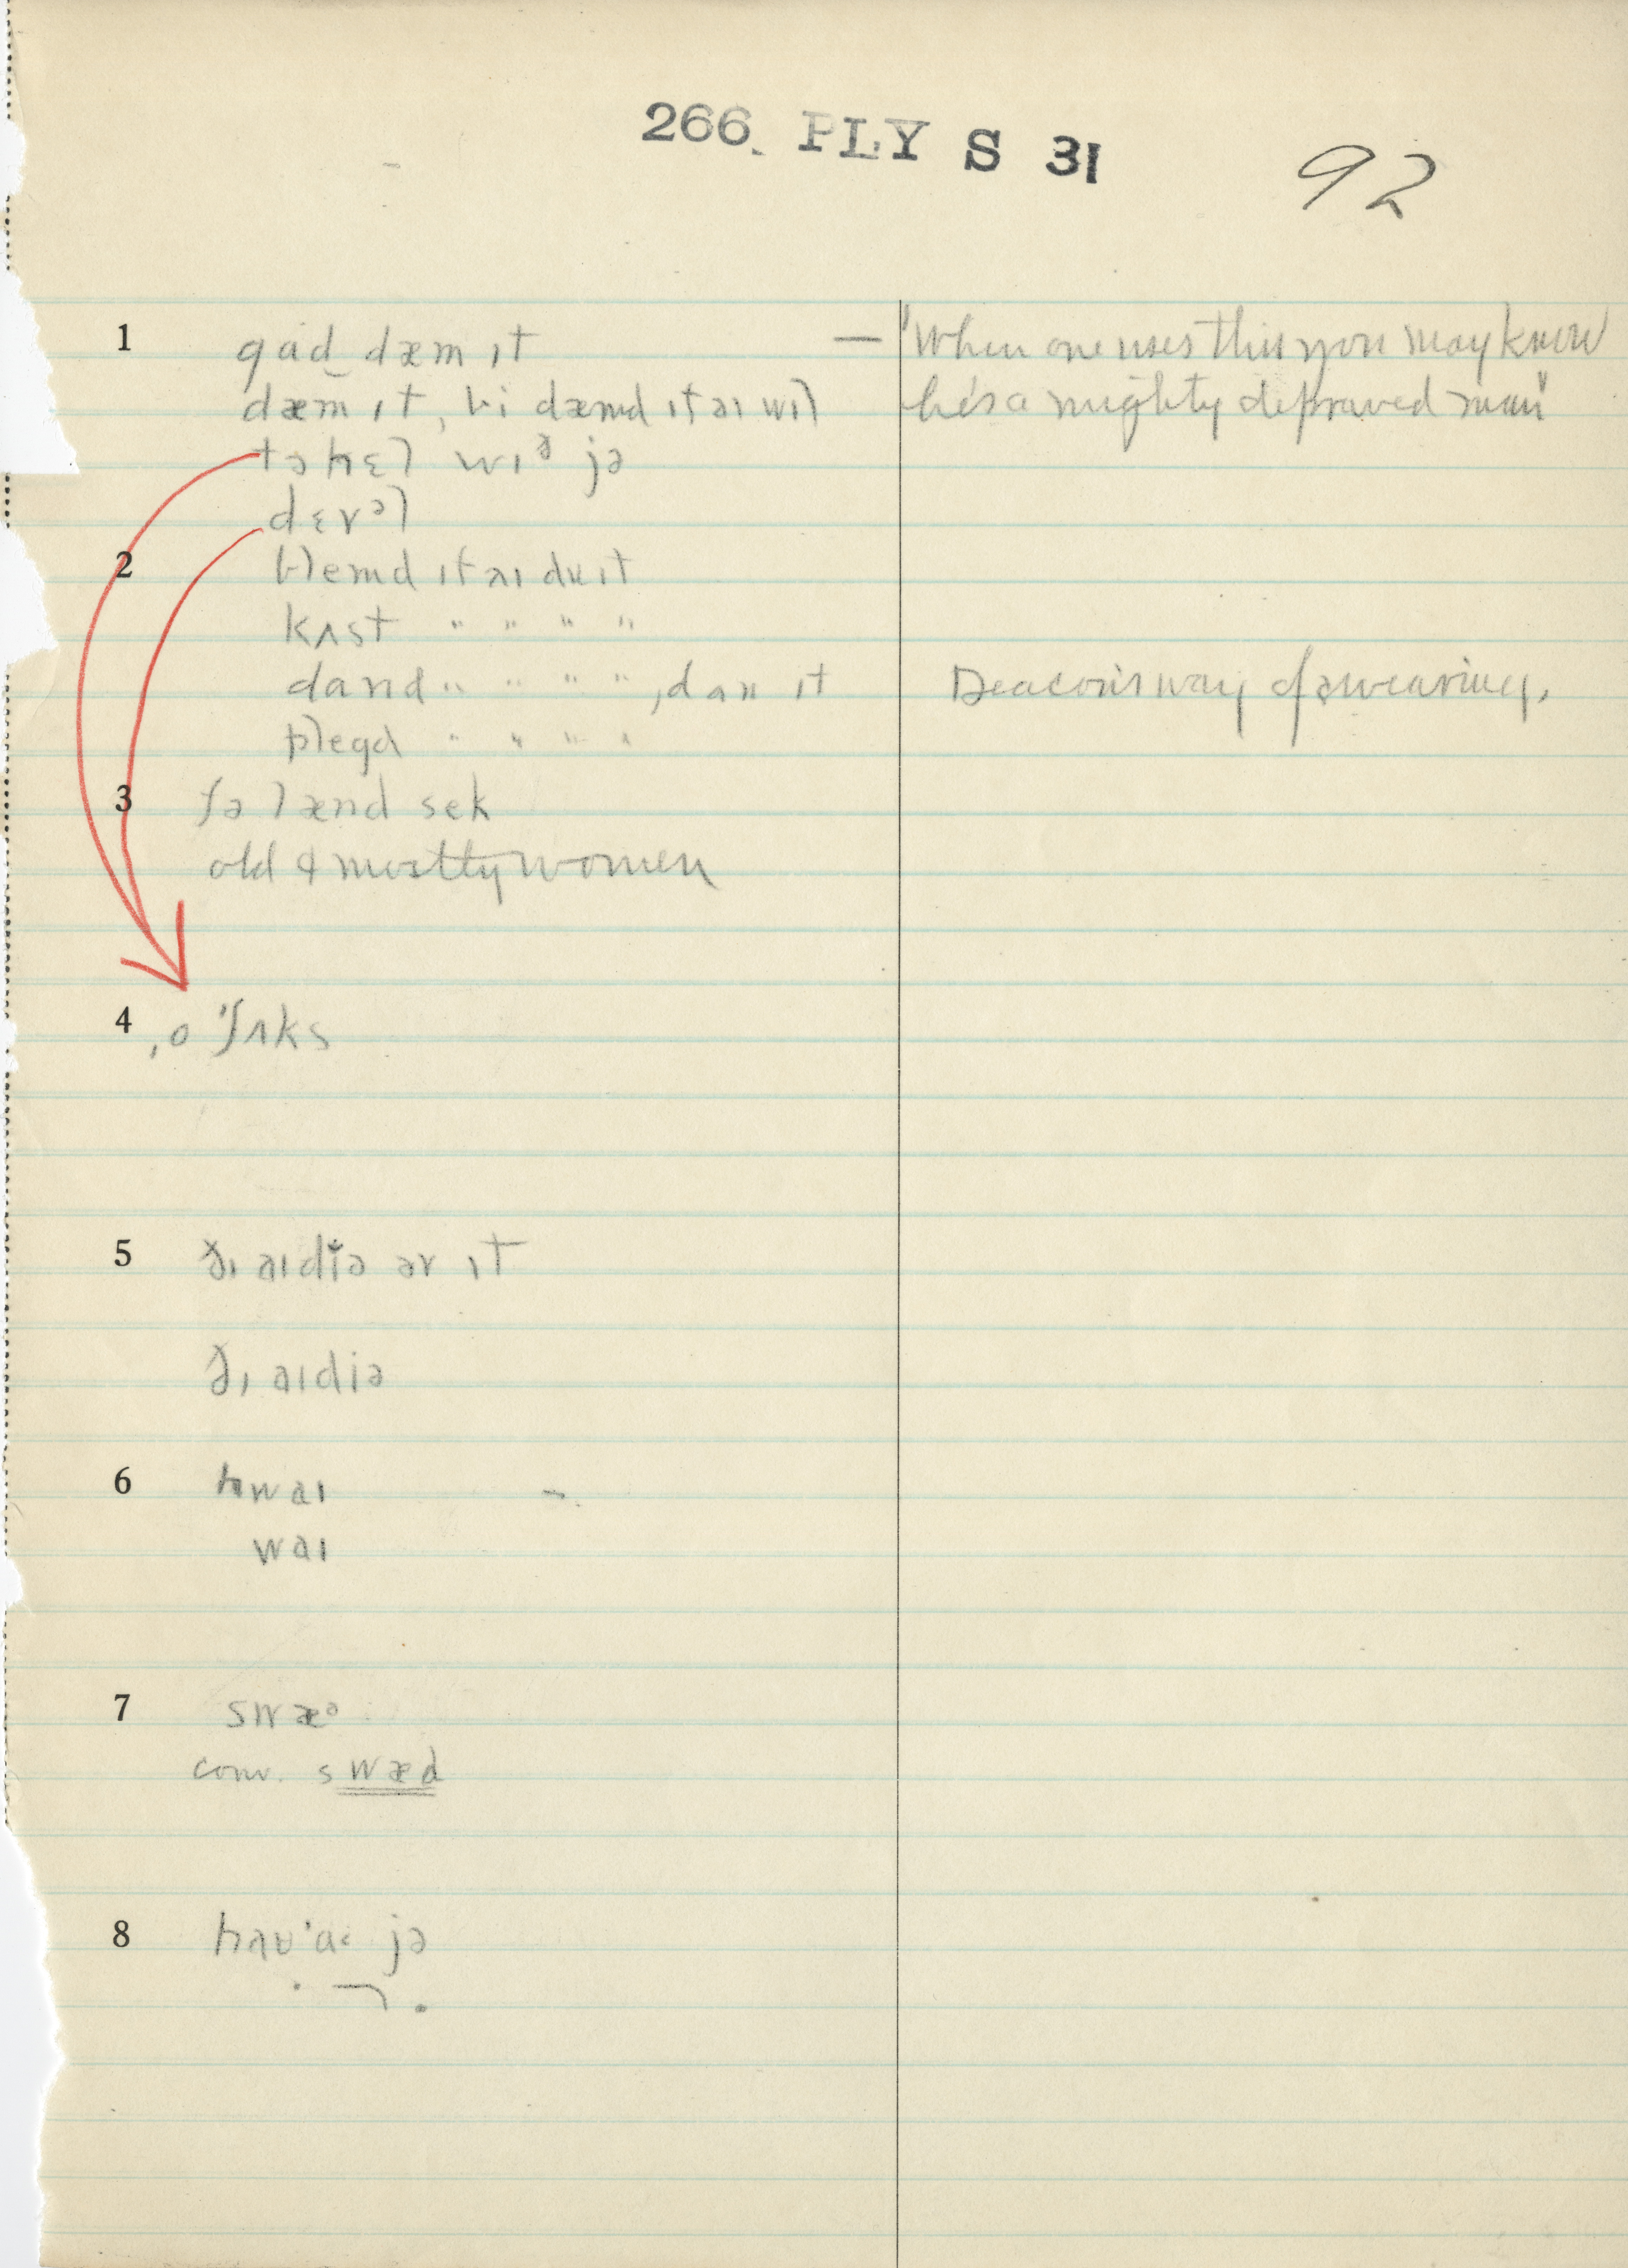 266. PLY S 31
92
1 gɑd dæm ɪt — "When one uses this you may know
dæm ɪt, bi dæmd ɪf aɪ wɪl he's a mighty depraved man"
tə hɛl wɪð jə
dɛvəl
2 blemd ɪf aɪ du ɪt
kʌst " " " "
dɑnd " " " " , dɑn ɪt Deacon's way of swearing.
plegd " " " "
3 fə lænd sek
old & mostly women
4 ˌo ˈʃʌks
5 ðɪ aɪdiə əv ɪt
ðɪ aɪdiə
6 hwaɪ
waɪ
7 swæə
conv. swæd
8 jə